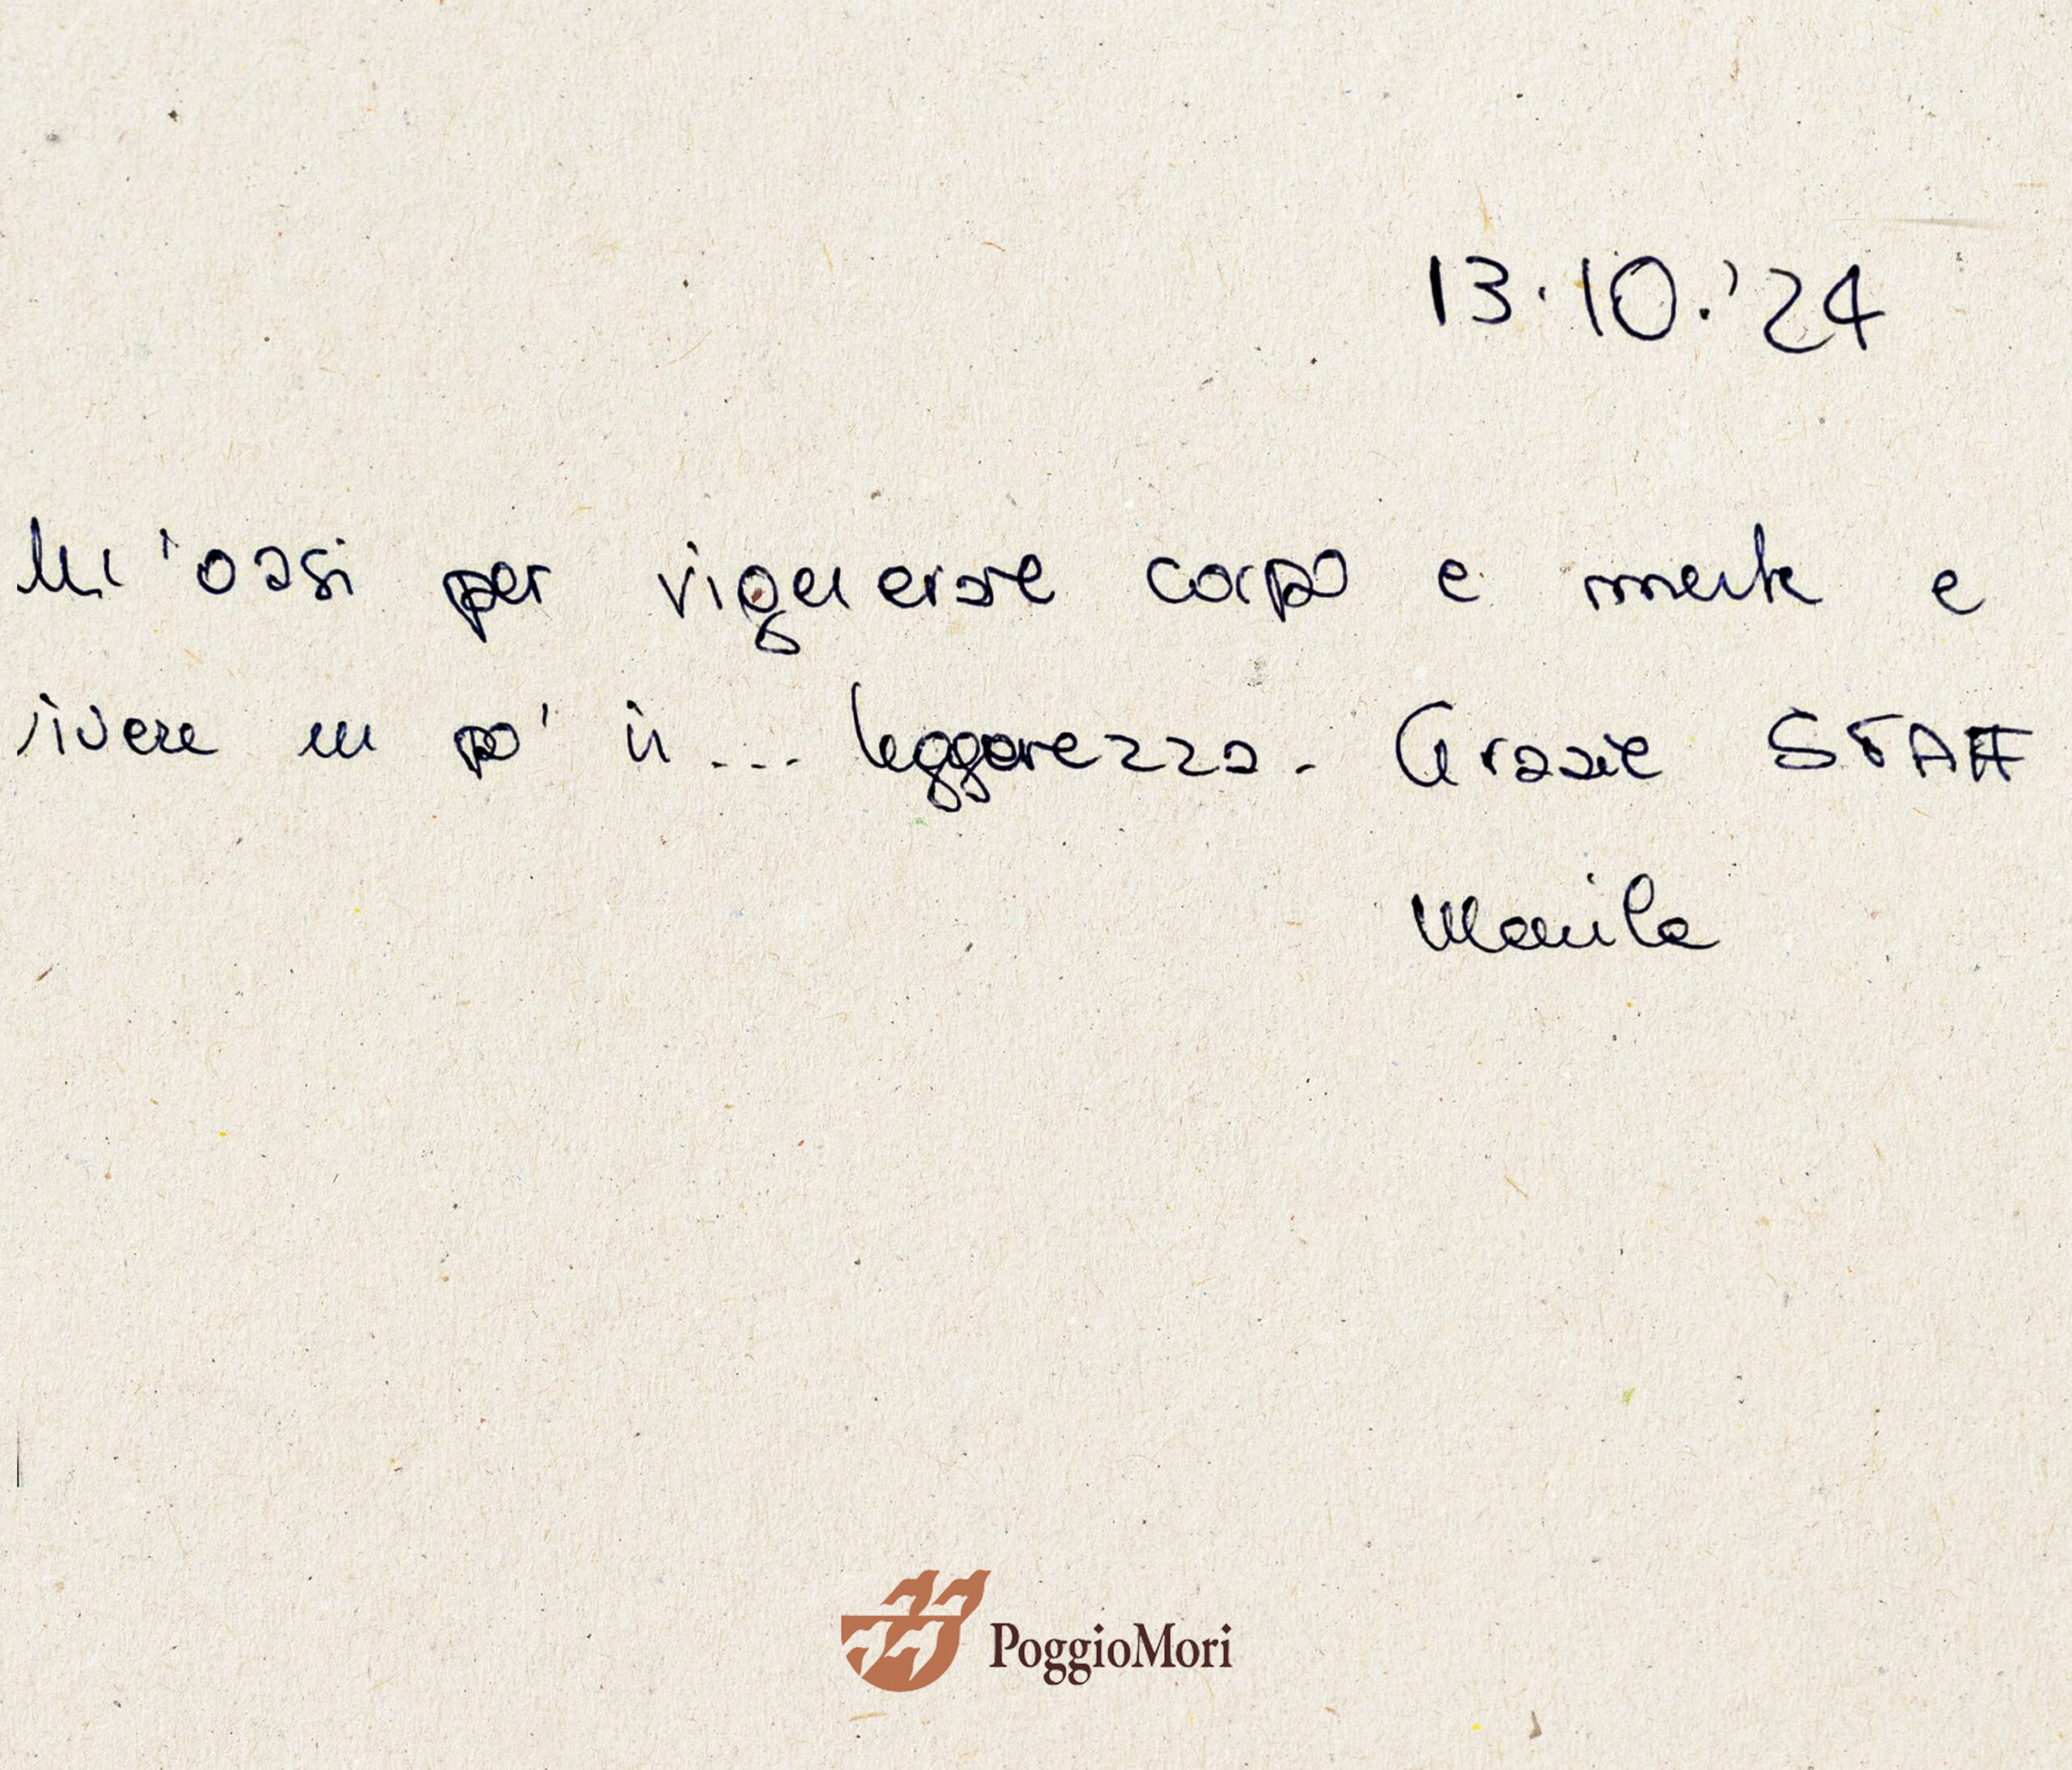 13.10.'24
Un'oasi per rigenerare corpo e mente e
vivere un po' in... leggerezza. Grazie STAFF
Manila
PoggioMori